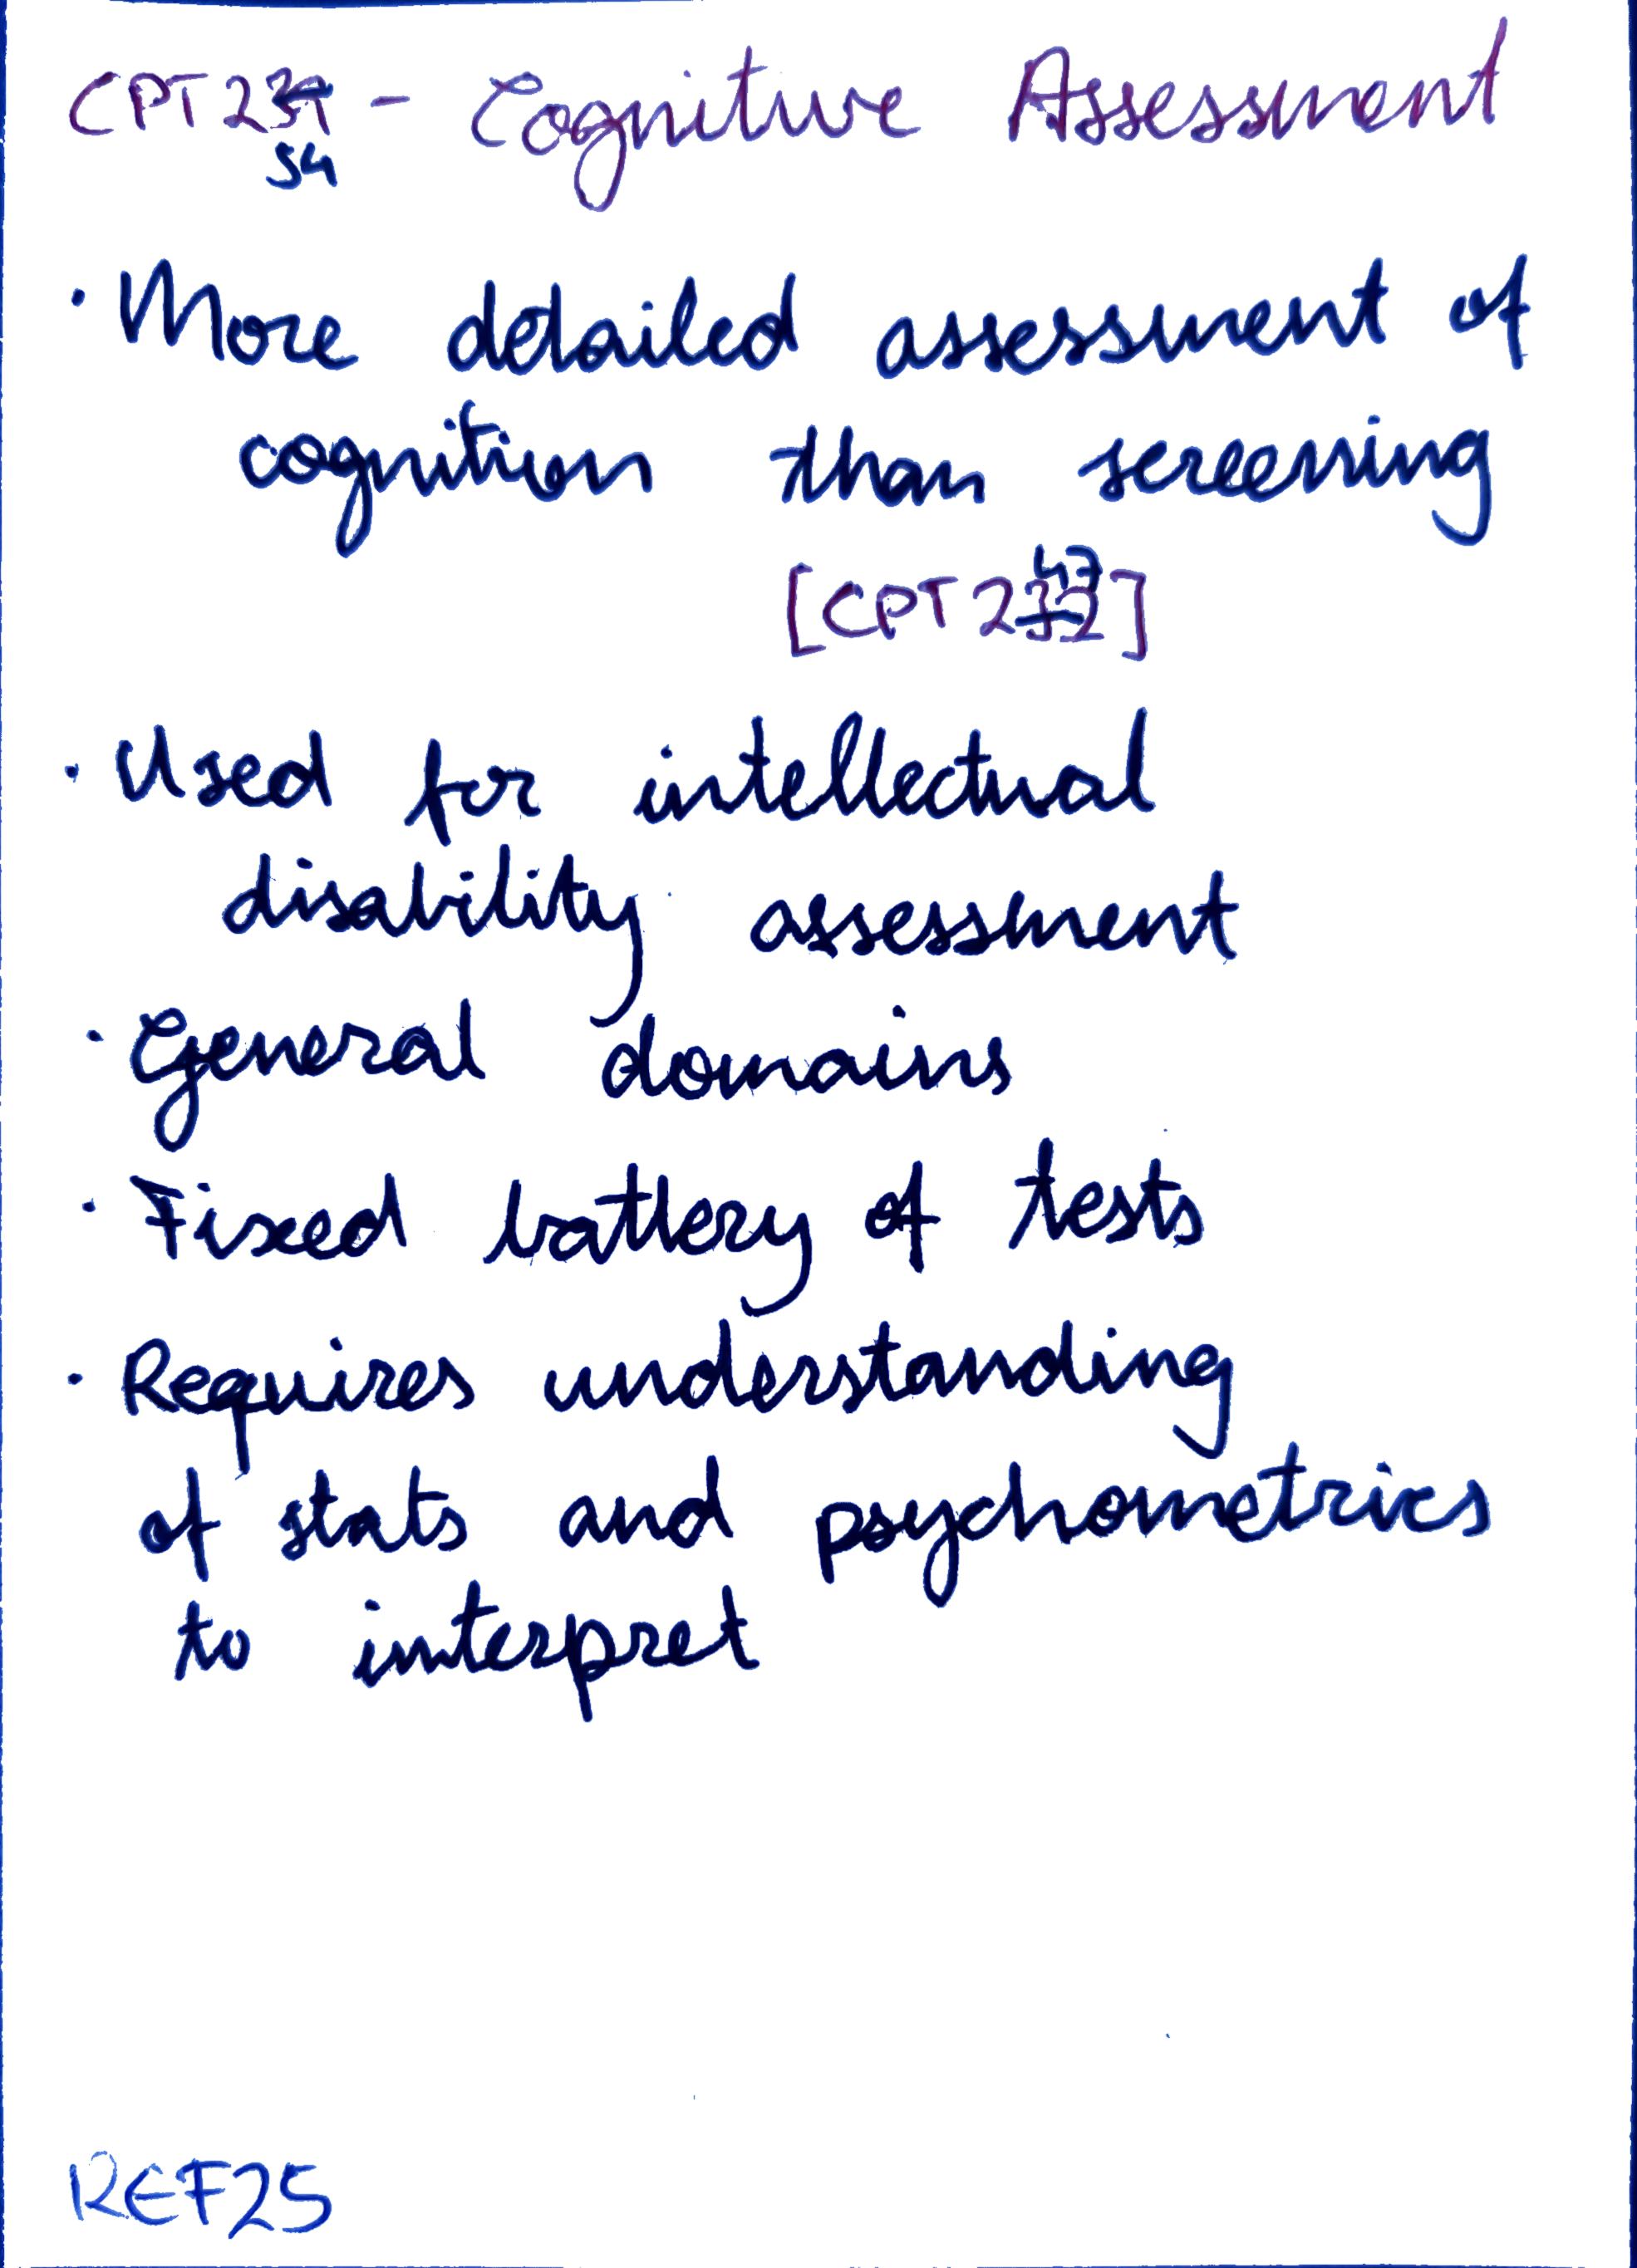 CPT239 - Cognitive Assessment
54
· More detailed assessment of
cognition than screening
47
[CPT232]
· Used for intellectual
disability assessment
· General domains
· Fixed battery of tests
· Requires understanding
of stats and psychometrics
to interpret
REF25